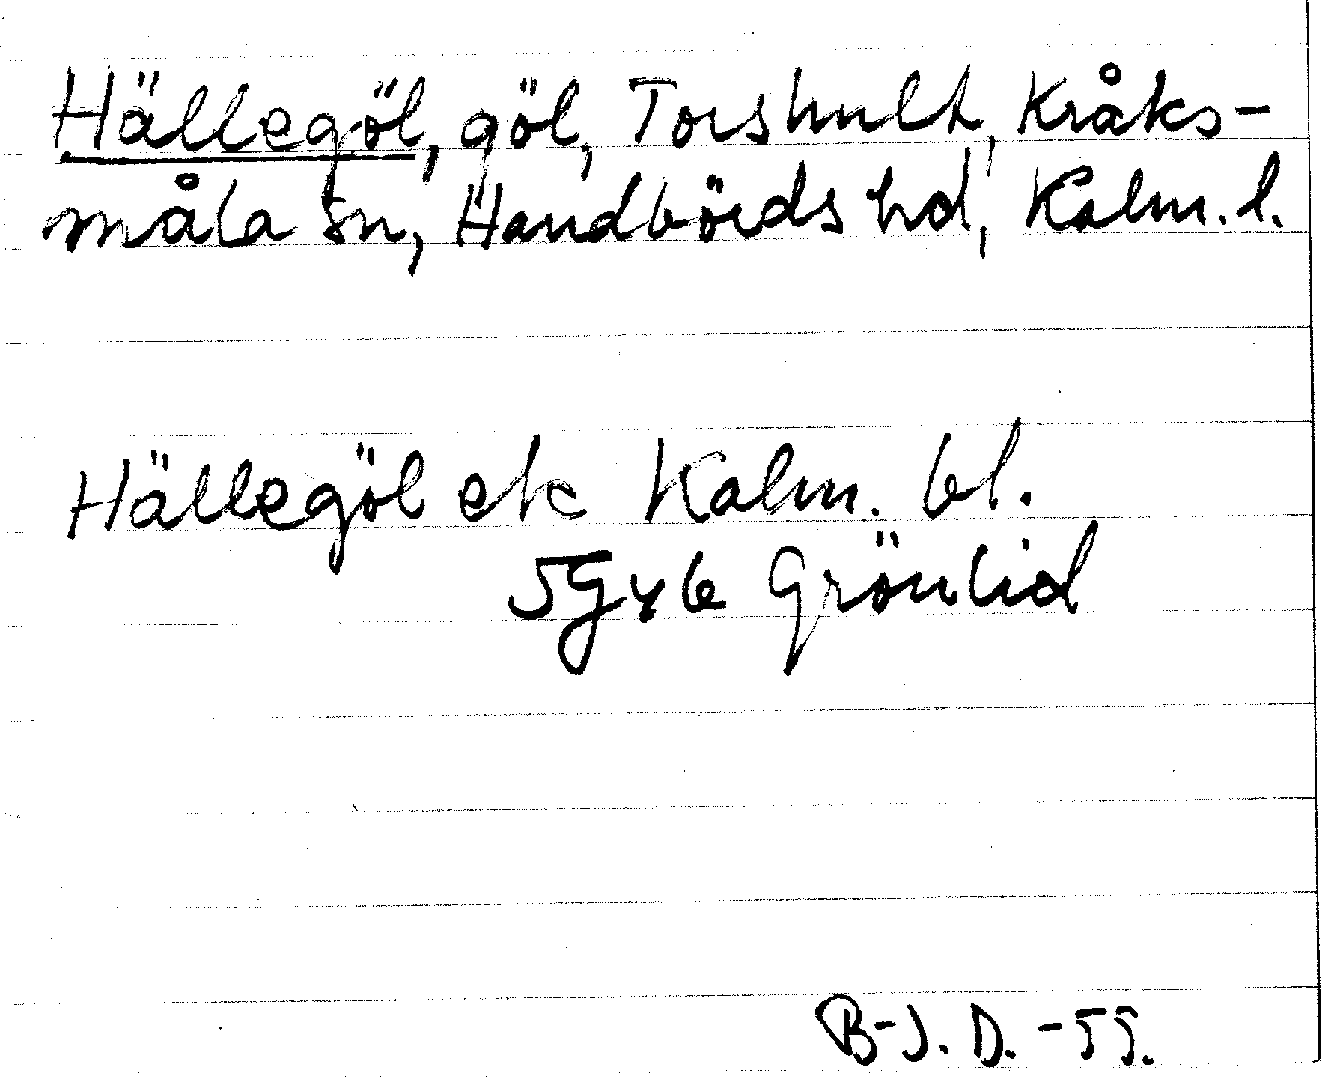 Hällegöl, göl, Torshult, Kråks-
måla sn, Handbörds hd, Kalm. l.
Hällegöl ek Kalm. bl.
5G y b Grönlid
B-J. D. -55.